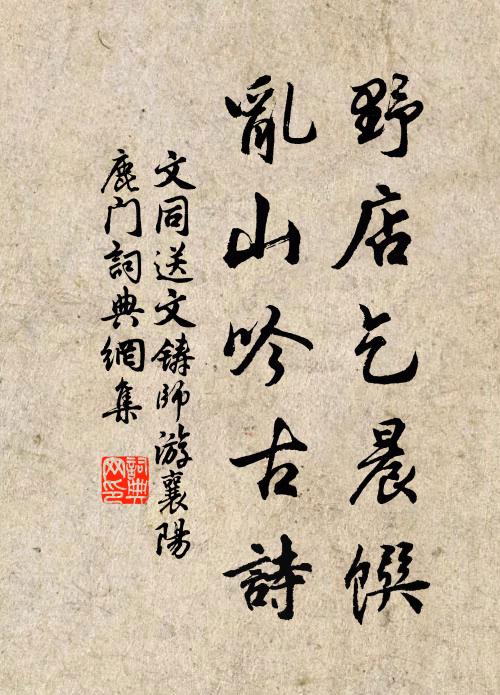 野店乞晨饌
亂山吟古詩
文同送文鑄師游襄陽
鹿门詞典網集
詞典网印